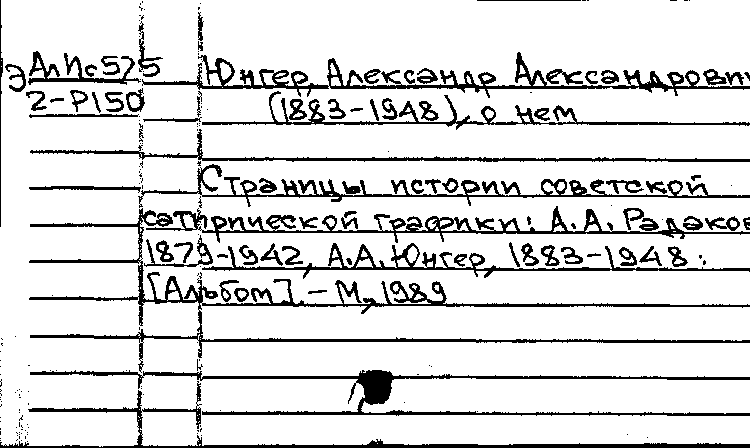 Э АлИс575
2-Р150
Юнгер, Александр Александрович
(1883-1948), о нем
Страницы истории советской
сатирической графики: А.А. Радаков
1879-1942, А.А. Юнгер, 1883-1948:
[Альбом]. - М., 1989